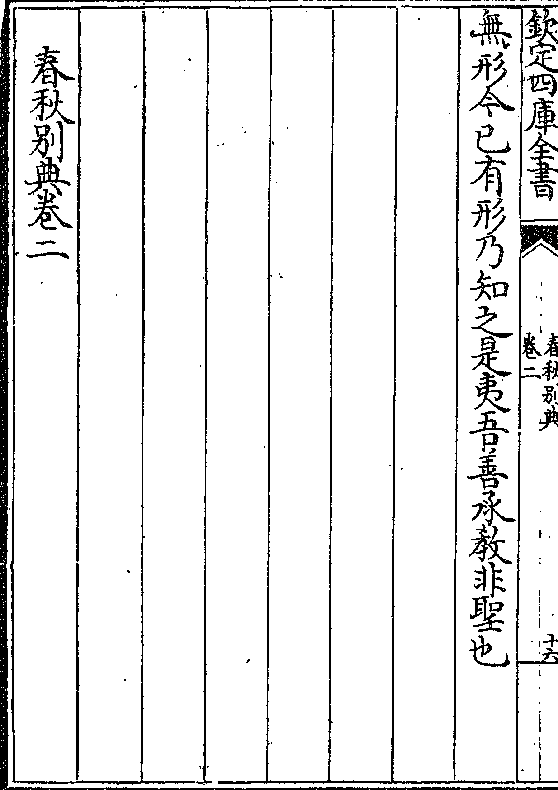 欽定四庫全書
春秋別典
卷二
十六
無形今已有形乃知之是夷吾善承教非聖也
春秋別典卷二